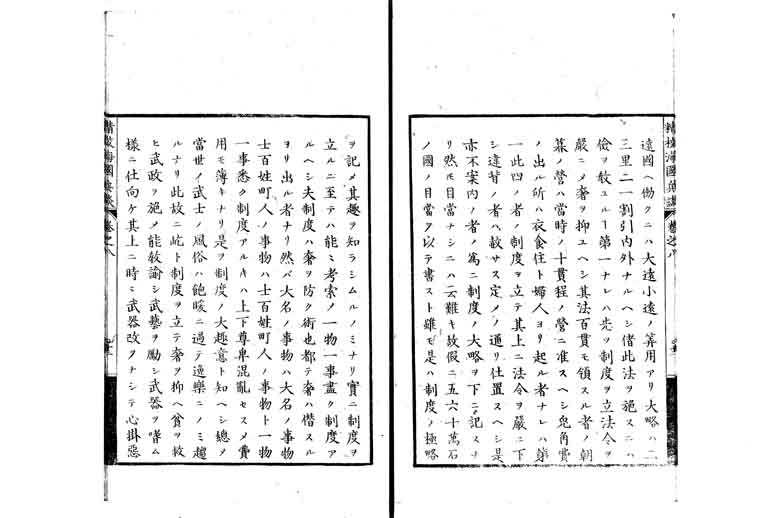 遠國ヘ働クニハ大遠小遠ノ筭用アリ大略ハ二
三里二一割引内外ナルヘシ偖此法ヲ施スニハ
儉ヲ敎ユル﹁第一ナレハ先ツ制度ヲ立法令ヲ
嚴ニメ奢ヲ抑ユヘシ其法百貫モ領スル者ノ朝
暮ノ營ハ當時ノ十貫程ノ營ニ准スヘシ兎角費
ノ出ル所ハ衣食住ト婦人ヨリ起ル者ナレハ第
一此四ノ者ノ制度ヲ立テ其上ニ法令ヲ嚴ニ下
シ違背ノ者ハ赦サス定メノ通リ仕置スヘシ是
亦不案内ノ者ノ爲ニ制度ノ大略ヲ下ニ記スナ
リ然モ目當ナシニハ云難キ故假ニ五六十萬石
ノ國ノ目當ヲ以テ書スト雖モ是ハ制度ノ極略
精校海國兵談
卷之八
ヲ記メ其趣ヲ知ラシムルノミナリ實ニ制度ヲ
立ルニ至テハ能ミ考索ノ一物一事盡ク制度ア
ルヘシ夫制度ハ奢ヲ防ク術也都テ奢ハ僭スル
ヨリ出ル者ナリ然バ大名ノ事物ハ大名ノ事物
士百姓町人ノ事物ハ士百姓町人ノ事物ト一物
一事悉ク制度アルキハ上下尊卑混亂セスメ費
用モ薄キナリ是ヲ制度ノ大趣意ト知ヘシ總メ
當世イ武士ノ風俗ハ飽暖ニ過テ逸樂ニノミ趨
ルナリ此故ニ屹ト制度ヲ立テ奢ヲ抑ヘ貧ヲ救
ヒ武政ヲ施メ能敎諭シ武藝ヲ勵シ武器ヲ嗜ム
樣ニ仕向ケ其上ニ時ミ武器改ヲナシテ心掛惡
精校海國兵談
卷之八